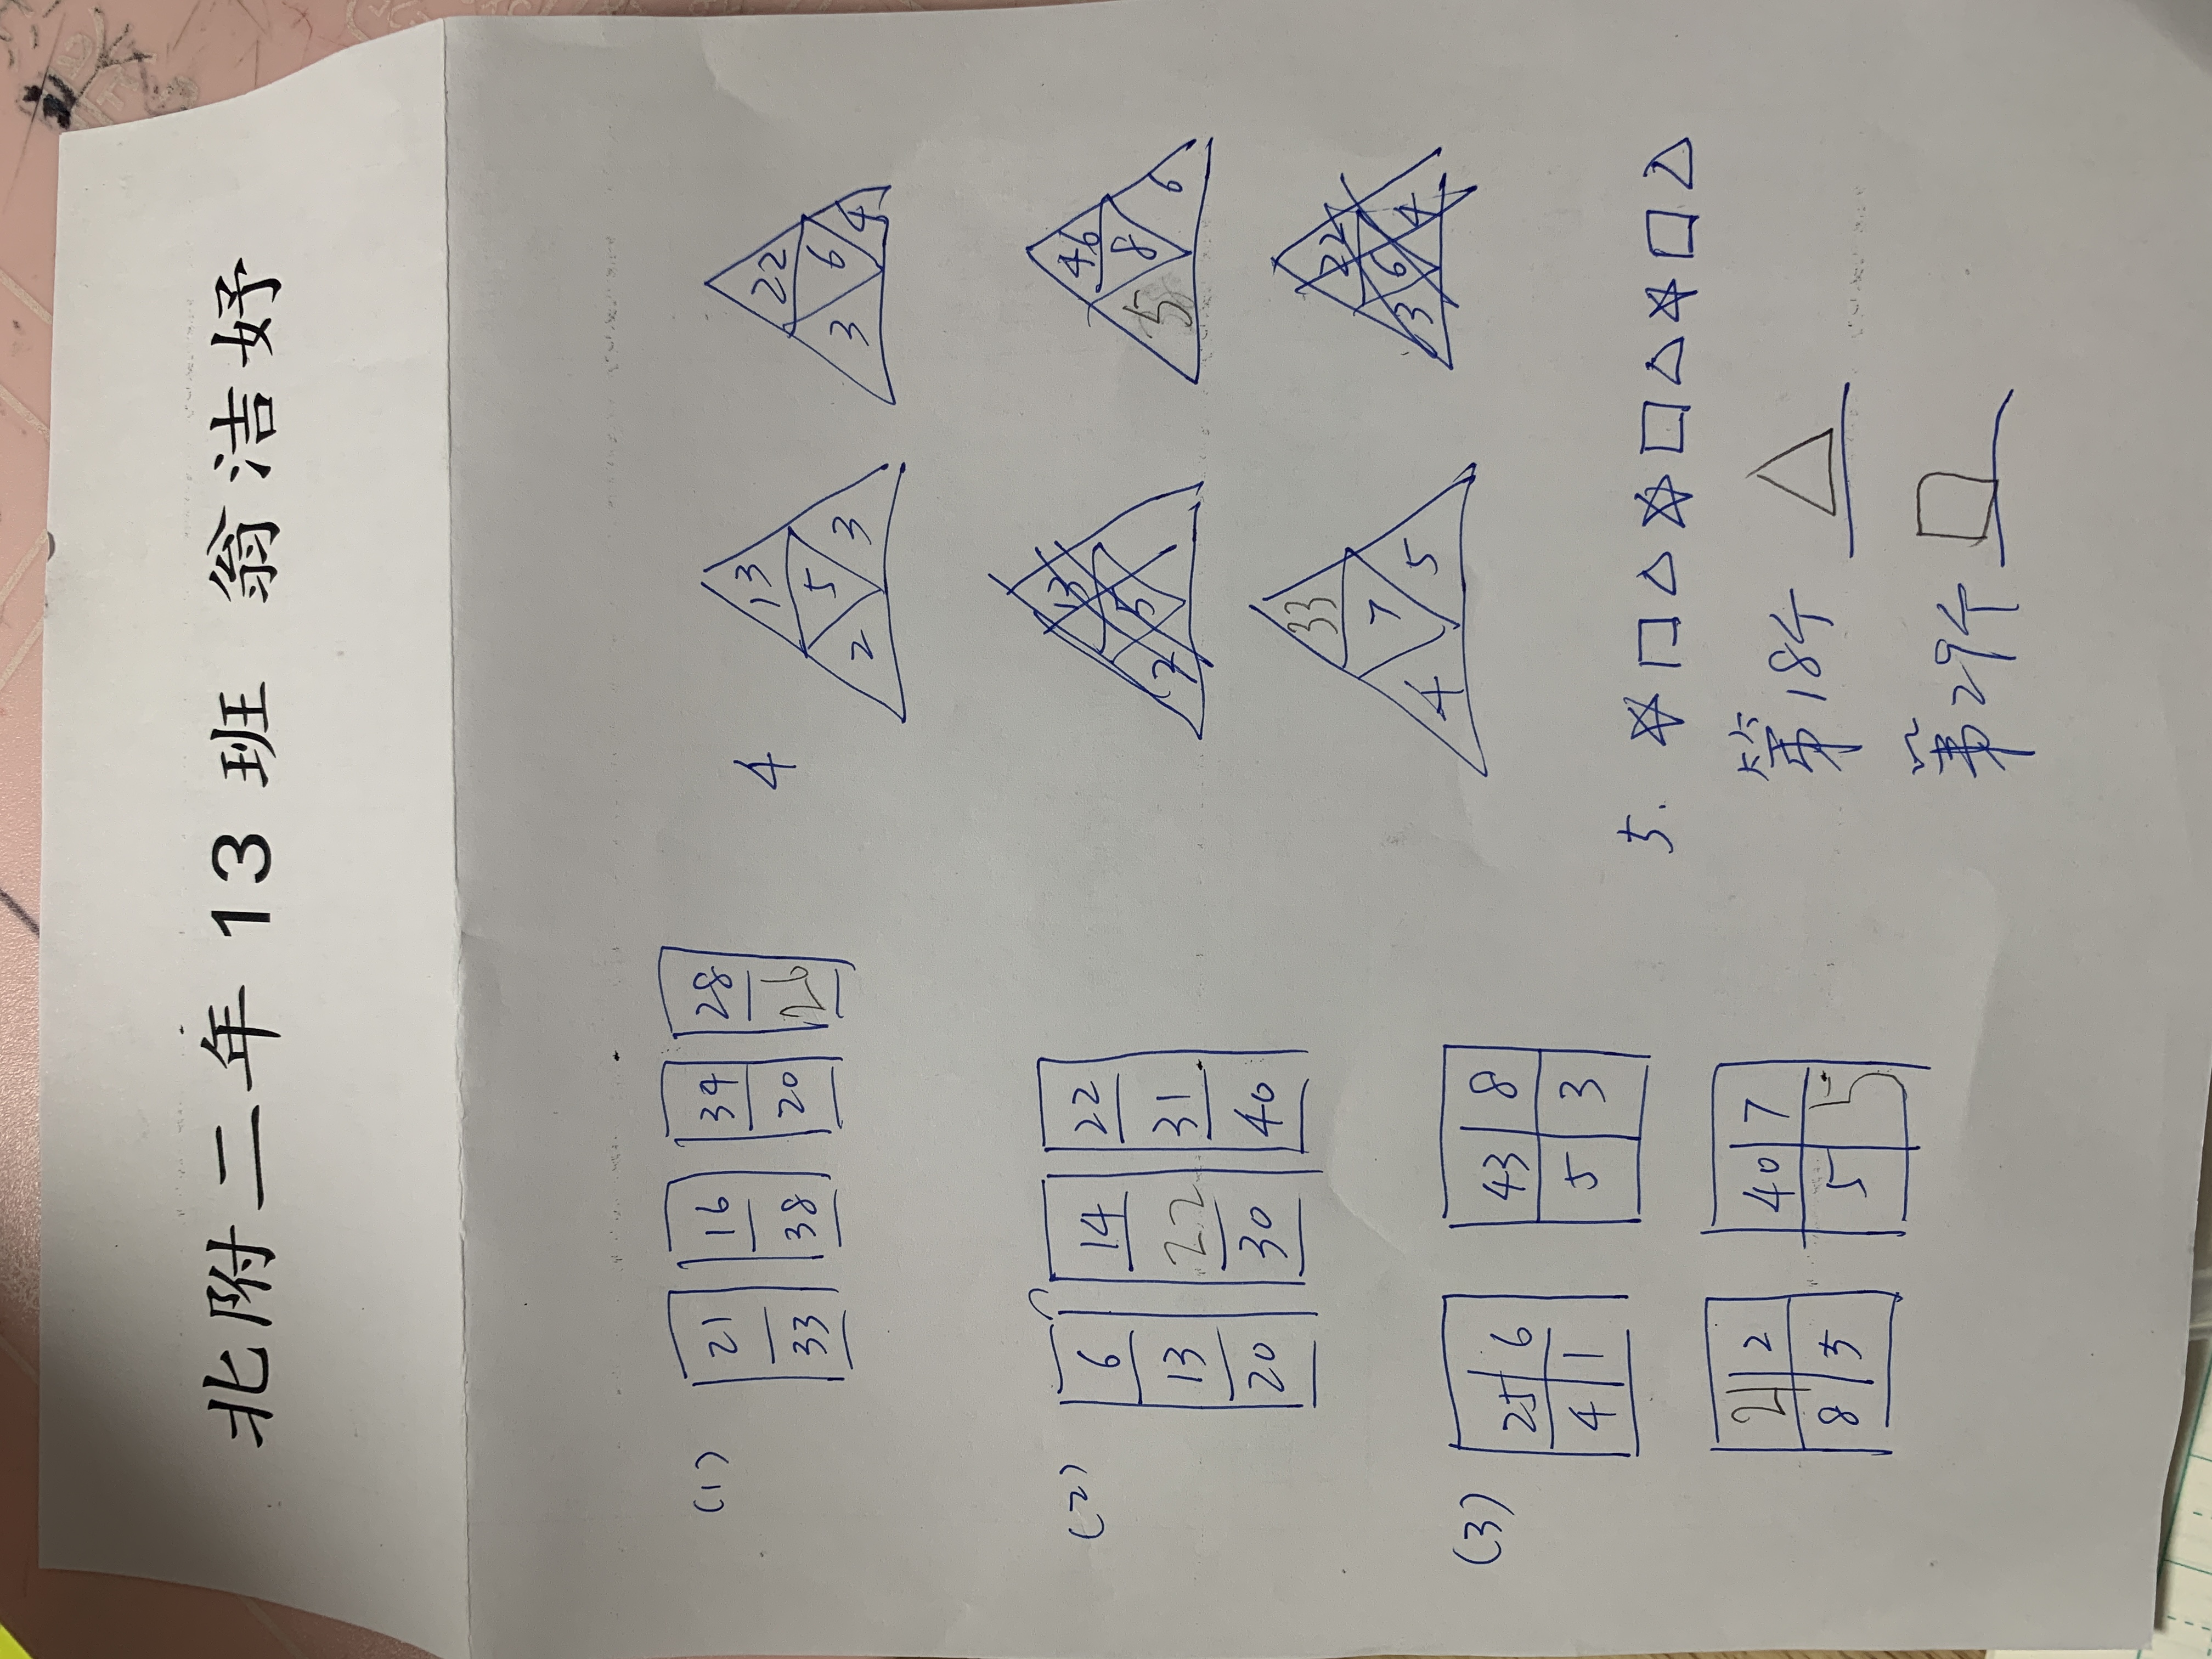 北附二年13班 翁洁妤
(1)
21 16 34 28
33 38 20 26
(2)
6 14 22
13 22 31
20 30 40
(3)
25 6 43 8
4 1 5 3
21 2 40 7
8 5 5 5
4
13 22
2 5 3 3 6 4
13 46
2 5 5 8 6
33 22
4 7 5 3 6 4
5. ☆□△☆□△☆□△
第18个 △
第29个 □